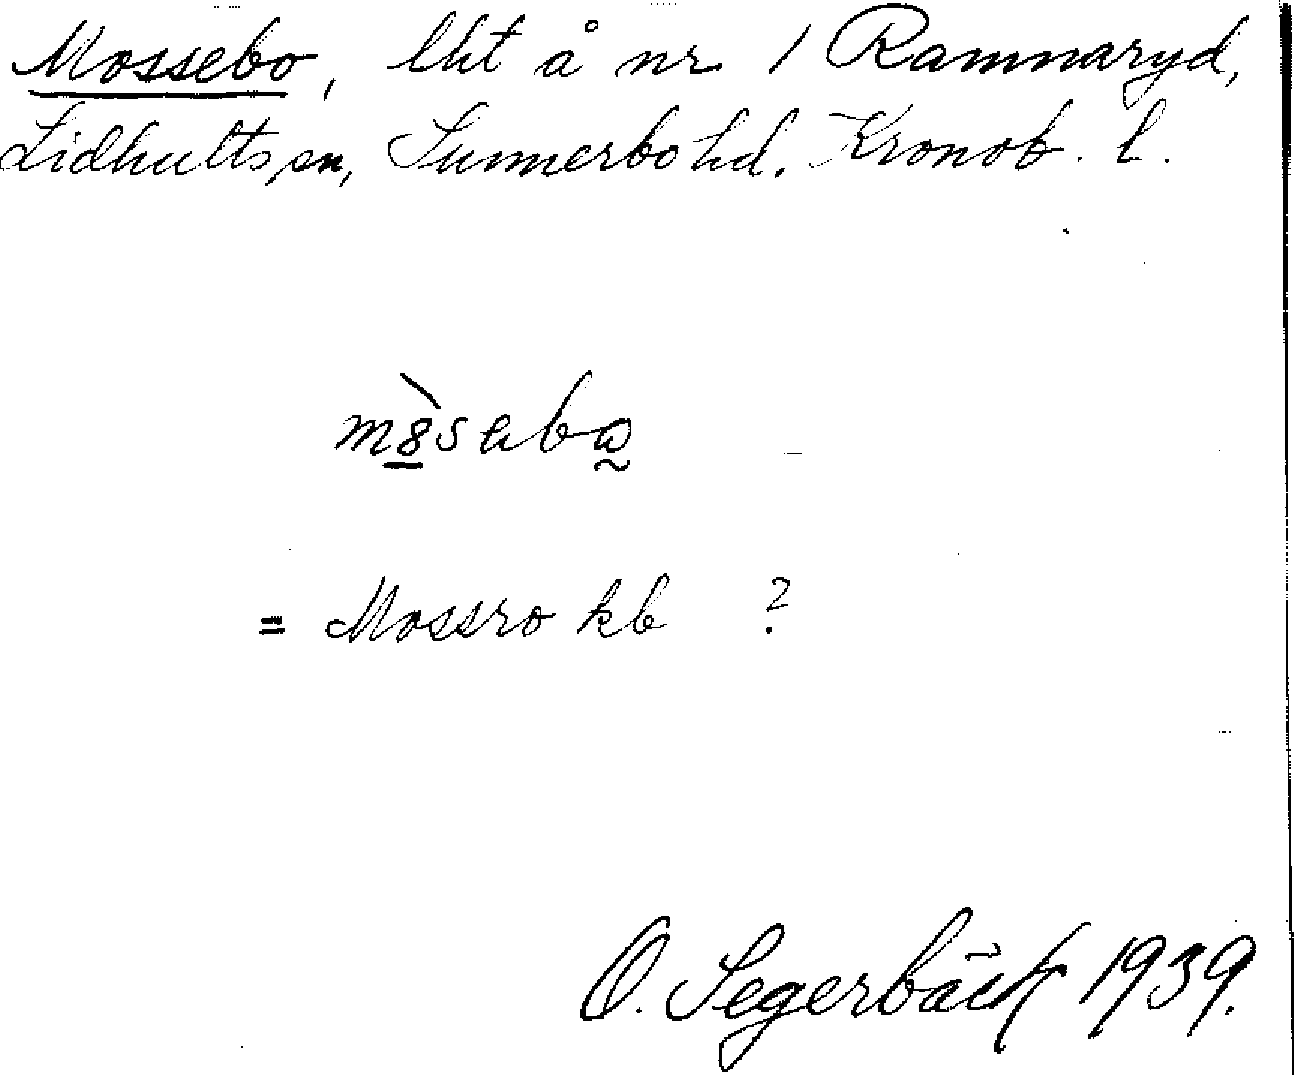 Mossebo, lht å nr 1 Ramnaryd,
Lidhults sn, Sunnerbo hd. Kronob. l.
= Mossro kb ?
O. Segerbäck 1939.